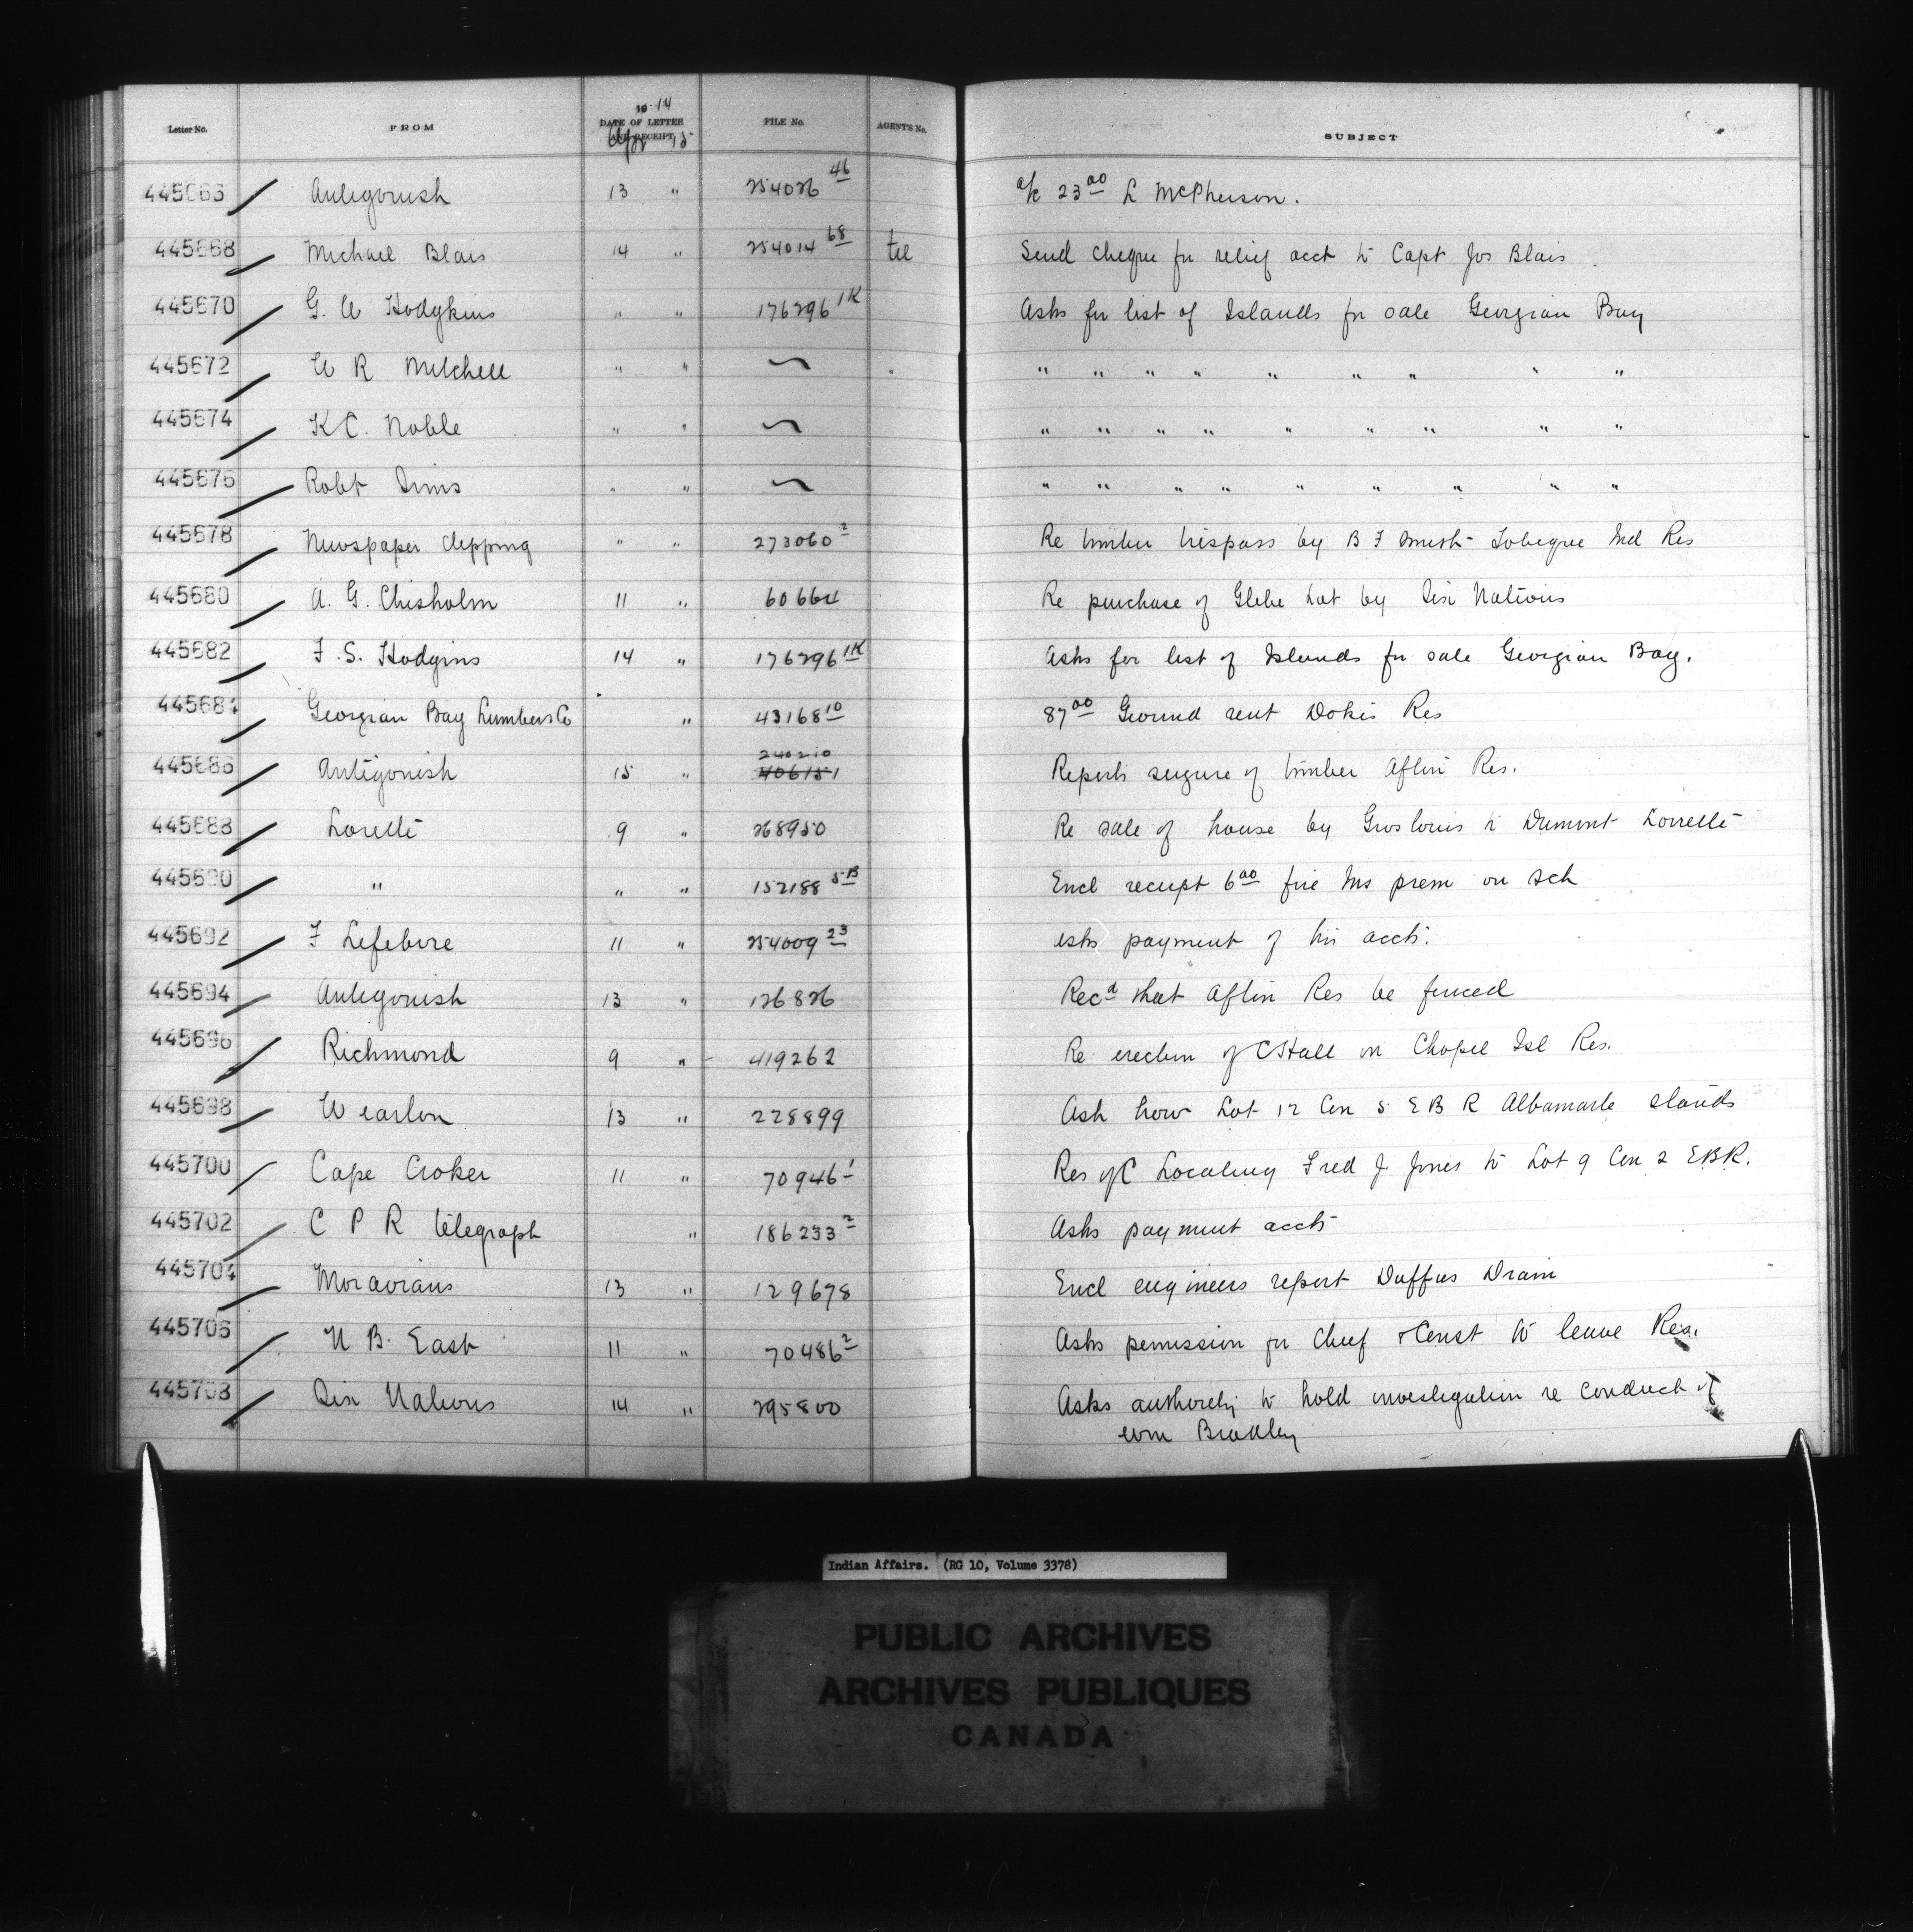 Letter No. FROM 1914 DATE OF LETTER AND RECEIPT Apr 15 FILE No. AGENT'S No. SUBJECT
445666 Antigonish 13 " 254026 46 a/c 23 00 L McPherson.
445668 Michael Blais 14 " 254014 68 tel Send cheque for relief acct to Capt Jos Blais
445670 G. A Hodgkins " " 176296 1K Asks for list of Islands for sale Georgian Bay
445672 W R Mitchell " " " " " " " " " " "
445674 K C. Noble " " " " " " " " " " "
445676 Robt Sims " " " " " " " " " " "
445678 Newspaper clipping " " 273060 2 Re timber trespass by B F Smith Tobique Ind Res
445680 A. G. Chisholm 11 " 60664 Re purchase of Glebe Lot by Six Nations
445682 F. S. Hodgins 14 " 176296 1K Asks for list of Islands for sale Georgian Bay.
445684 Georgian Bay Lumber Co " 43168 10 87 00 Ground rent Dokis Res
445686 Antigonish 15 " 240210 406151 Reports seizure of timber Afton Res.
445688 Lorette 9 " 268950 Re sale of house by Groslouis to Dumont Lorrette
445690 " " " 152188 5B Encl receipt 6 00 fire Ins prem on sch
445692 F Lefebvre 11 " 254009 23 asks payment of his accts.
445694 Antigonish 13 " 126826 Recd that Afton Res be fenced
445696 Richmond 9 " 419262 Re erection of C Hall on Chapel Isl Res.
445698 Wiarton 13 " 228899 Ask how Lot 12 Con 5 E B R Albamarle stands
445700 Cape Croker 11 " 70946 1 Res of C Locating Fred J Jones to Lot 9 Con 2 E.B.R.
445702 C P R telegraph " 186233 2 Asks payment accts
445704 Moravians 13 " 129678 Encl engineers report Duffus Drain
445706 N B. East 11 " 70486 2 Asks permission for Chief & Const to leave Res.
445708 Six Nations 14 " 295800 Asks authority to hold investigation re conduct of
Wm Bradley
Indian Affairs. (RG 10, Volume 3378)
PUBLIC ARCHIVES
ARCHIVES PUBLIQUES
CANADA